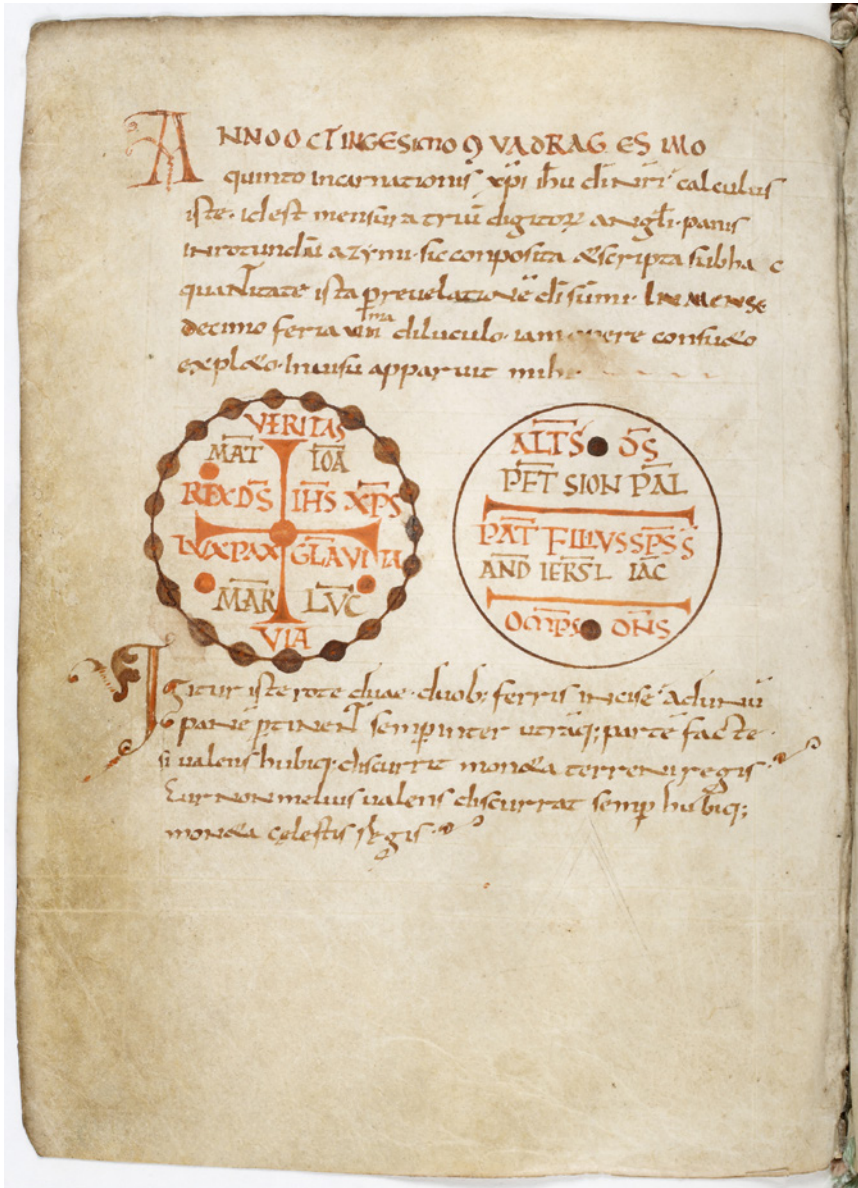 ANNO OCTINGESIMO QVADRAGESIMO
quinto incarnationis xp̄i ih̄u dn̄i nr̄i calculus
iste · id est mensura triū digitoꝝ angl̄i · panis
in rotundū azymi · sic conposita & scripta sub hac
quantitate ista ꝑ revelationē dī sūmi · IN MENSE
decimo feria ma diluculo · iam opere consu&o
expl&o · In uisu apparuit mihi
VERITAS
MAT IOA
REX DS IHS XPS
LVX PAX GLA VITA
MAR LVC
VIA
ALTS OS
PET SION PAL
PAT FILIVS SPS S
AND IERSL IAC
OMPS ONS
Igitur iste rote duae · duob; ferris incise · ad unū
panē ꝑtinent semp inter utrāq; partē facte ·
si ualens hubiq · discurrit mon&a terreni regis ·
Cur non melius ualens discurrat semp hubiq;
mon&a celestis regis ·